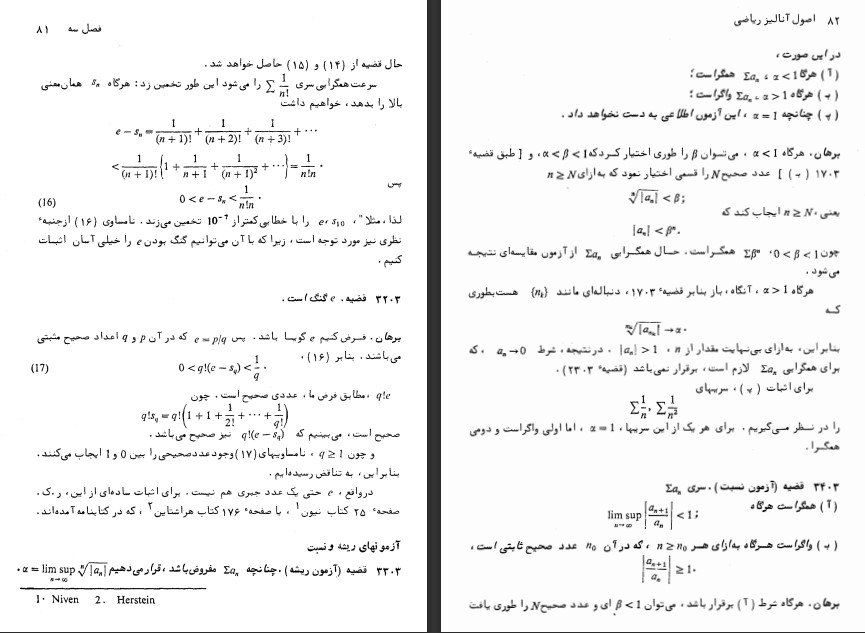 فصل سه ۸۱
حال قضیه از (۱۴) و (۱۵) حاصل خواهد شد.
سرعت همگرایی سری ∑ 1/n! را می‌شود این طور تخمین زد: هرگاه sₙ همان‌معنی
بالا را بدهد، خواهیم داشت
e − sₙ = 1/(n + 1)! + 1/(n + 2)! + 1/(n + 3)! + ⋯
< 1/(n + 1)! {1 + 1/(n + 1) + 1/(n + 1)² + ⋯} = 1/n!n .
پس
(16) 0 < e − sₙ < 1/n!n .
لذا، مثلا"، s₁₀، e را با خطایی‌کمتراز 10⁻⁷ تخمین می‌زند. نامساوی (۱۶) ازجنبهٔ
نظری نیز مورد توجه است، زیرا که با آن می‌توانیم گنگ بودن e را خیلی آسان اثبات
کنیم.
۳۲.۳ قضیه. e گنگ است.
برهان. فرض‌کنیم e گویسا باشد. پس e = p/q که در آن p و q اعداد صحیح مثبتی
می‌باشند. بنابر (۱۶)،
(17) 0 < q!(e − s_q) < 1/q .
q!e، مطابق فرض ما، عددی صحیح است. چون
q!s_q = q!(1 + 1 + 1/2! + ⋯ + 1/q!)
صحیح است، می‌بینیم که q!(e − s_q) نیز صحیح می‌باشد.
و چون q ≥ 1، نامساویهای (۱۷) وجود عددصحیحی را بین 0 و 1 ایجاب می‌کنند.
بنابر این، به تناقض رسیده‌ایم.
درواقع، e حتی یک عدد جبری هم نیست. برای اثبات ساده‌ای از این، ر.ک.
صفحهٔ ۲۵ کتاب نیون¹، یا صفحهٔ ۱۷۶ کتاب هراشتاین²، که در کتابنامه آمده‌اند.
آزمونهای ریشه و نسبت
۳۳.۳ قضیه (آزمون ریشه). چنانچه Σaₙ مفروض‌باشد، قرار می‌دهیم α = lim sup n→∞ ⁿ√|aₙ| .
1. Niven 2. Herstein
۸۲ اصول آنالیز ریاضی
در این صورت،
(آ) هرگاه α < 1، Σaₙ همگراست؛
(ب) هرگاه α > 1، Σaₙ واگراست؛
(پ) چنانچه α = 1، این آزمون اطلاعی به دست نخواهد داد.
برهان. هرگاه α < 1، می‌توان β را طوری اختیار کردکه α < β < 1، و [طبق قضیهٔ
۱۷.۳ (ب)] عدد صحیح N را قسمی اختیار نمود که به‌ازای n ≥ N
ⁿ√|aₙ| < β;
یعنی، n ≥ N ایجاب کند که
|aₙ| < βⁿ.
چون 0 < β < 1، Σβⁿ همگراست. حال همگرایی Σaₙ از آزمون مقایسه‌ای نتیجه
می‌شود.
هرگاه α > 1، آنگاه، باز بنابر قضیهٔ ۱۷.۳، دنباله‌ای مانند {nₖ} هست‌بطوری
که
ⁿᵏ√|aₙₖ| → α.
بنابر این، به‌ازای بی‌نهایت مقدار از n، |aₙ| > 1. درنتیجه، شرط aₙ → 0، که
برای همگرایی Σaₙ لازم است، برقرار نمی‌باشد (قضیهٔ ۲۳.۳).
برای اثبات (پ)، سریهای
∑ 1/n , ∑ 1/n²
را در نظر می‌گیریم. برای هر یک از این سریها، α = 1، اما اولی واگراست و دومی
همگرا.
۳۴.۳ قضیه (آزمون نسبت). سری Σaₙ
(آ) همگراست هرگاه lim sup n→∞ |aₙ₊₁/aₙ| < 1;
(ب) واگراست هرگاه به‌ازای هر n ≥ n₀، که در آن n₀ عدد صحیح ثابتی است،
|aₙ₊₁/aₙ| ≥ 1.
برهان. هرگاه شرط (آ) برقرار باشد، می‌توان β < 1 ای و عدد صحیح N را طوری یافت